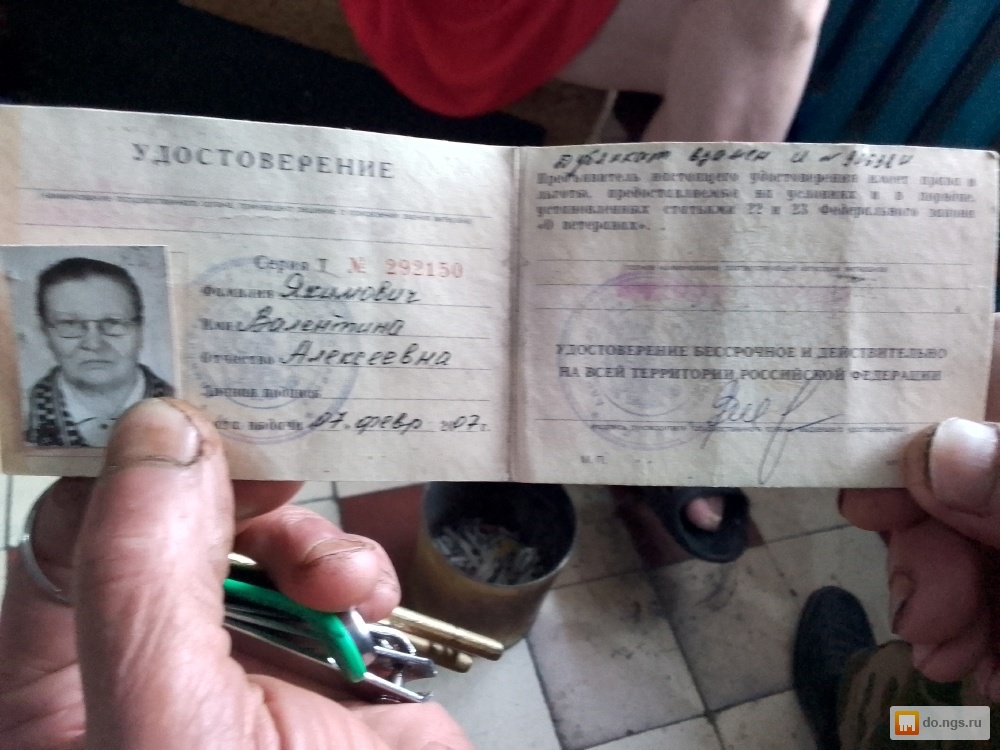 УДОСТОВЕРЕНИЕ
Серия Т № 292150
Фамилия Якимович
Имя Валентина
Отчество Алексеевна
Личная подпись
Дата выдачи 07. февр 2007 г.
Дубликат взамен
Предъявитель настоящего удостоверения имеет права и
льготы, предоставляемые на условиях и в порядке,
установленных статьями 22 и 23 Федерального закона
«О ветеранах».
УДОСТОВЕРЕНИЕ БЕССРОЧНОЕ И ДЕЙСТВИТЕЛЬНО
НА ВСЕЙ ТЕРРИТОРИИ РОССИЙСКОЙ ФЕДЕРАЦИИ
М. П.
do.ngs.ru